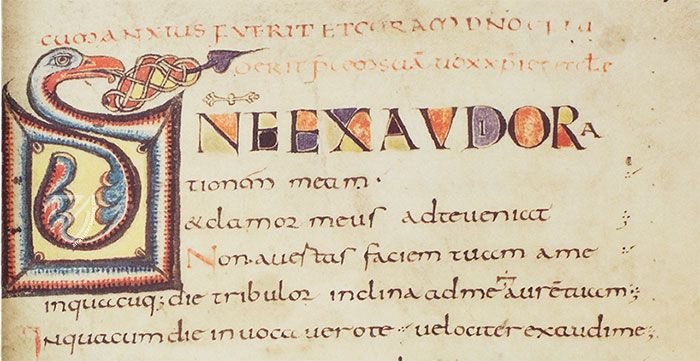 CUM ANXIUS FUERIT ET CORAM DNO
DERIT
DNE EXAVDI ORA
tionem meam·
& clamor meus ad te veniat
Non avertas faciem tuam a me
inquacuq; die tribulor inclina ad me aurem tuam;
Inquacum die invocavero te velociter exaudi me;